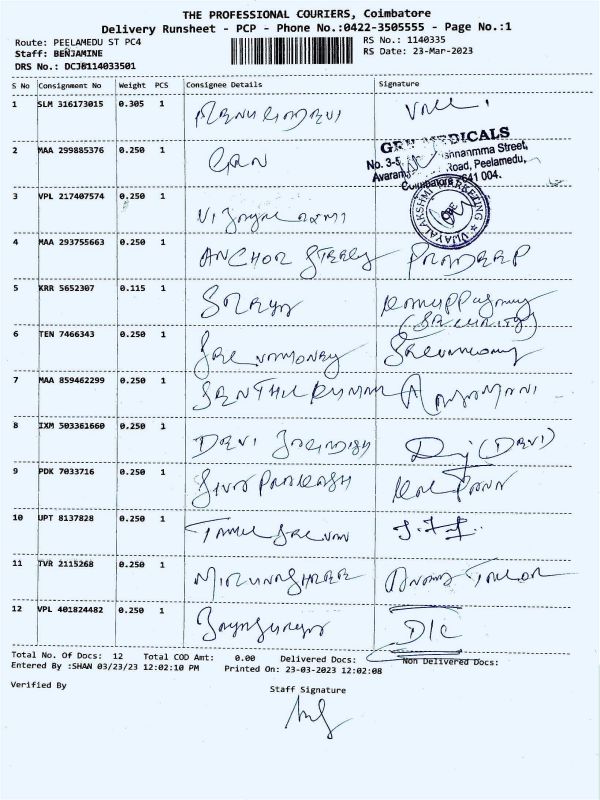 THE PROFESSIONAL COURIERS, Coimbatore
Delivery Runsheet - PCP - Phone No.:0422-3505555 - Page No.:1
Route: PEELAMEDU ST PC4 RS No.: 1140335
Staff: BENJAMINE RS Date: 23-Mar-2023
DRS No.: DCJ8114033501
S No Consignment No Weight PCS Consignee Details Signature
1 SLM 316173015 0.305 1
2 MAA 299885376 0.250 1
MEDICALS
No. 3-5, Street,
Road, Peelamedu,
641 004.
3 VPL 217407574 0.250 1
VIJAYALAKSHMI MARKETING
4 MAA 293755663 0.250 1 ANCHOR STEELS PRADEEP
5 KRR 5652307 0.115 1
(SECURITY)
6 TEN 7466343 0.250 1 Selvamoney
7 MAA 859462299 0.250 1 SENTHIL KUMAR
8 IXM 503361660 0.250 1 DEVI (DEVI)
9 PDK 7033716 0.250 1 Siva PRAKASH
10 UPT 8137828 0.250 1 TAMIL SELVAN
11 TVR 2115268 0.250 1 MIRUNASHREE
12 VPL 401824482 0.250 1 D/C
Total No. Of Docs: 12 Total COD Amt: 0.00 Delivered Docs: Non Delivered Docs:
Entered By :SHAN 03/23/23 12:02:10 PM Printed On: 23-03-2023 12:02:08
Verified By Staff Signature